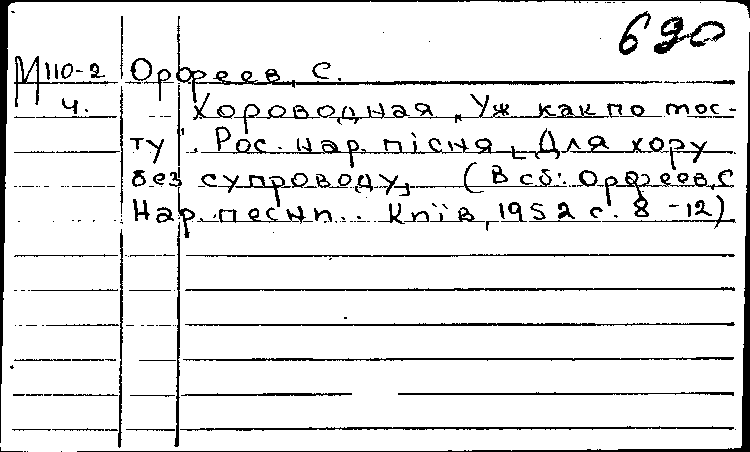 690
М110-2 Орфеев, С.
4. Хороводная „Уж как по мос-
ту". Рос. нар. пісня [Для хору
без супроводу] (В сб: Орфеев, С
Нар. песни.. Київ, 1952 с. 8-12)